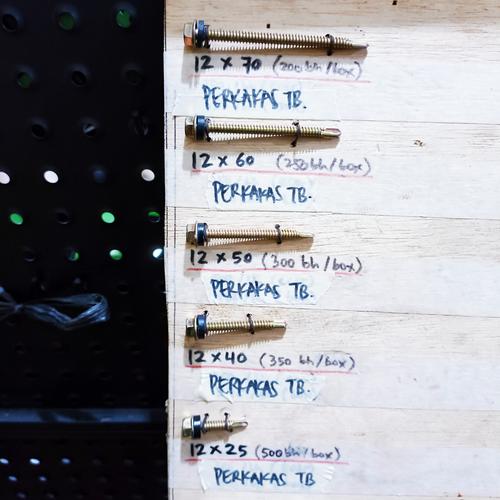 12 x 70 (200 bh/box)
PERKAKAS TB.
12 x 60 (250 bh/box)
PERKAKAS TB.
12 x 50 (300 bh/box)
PERKAKAS TB.
12 x 40 (350 bh/box)
PERKAKAS TB.
12 x 25 (500 bh/box)
PERKAKAS TB